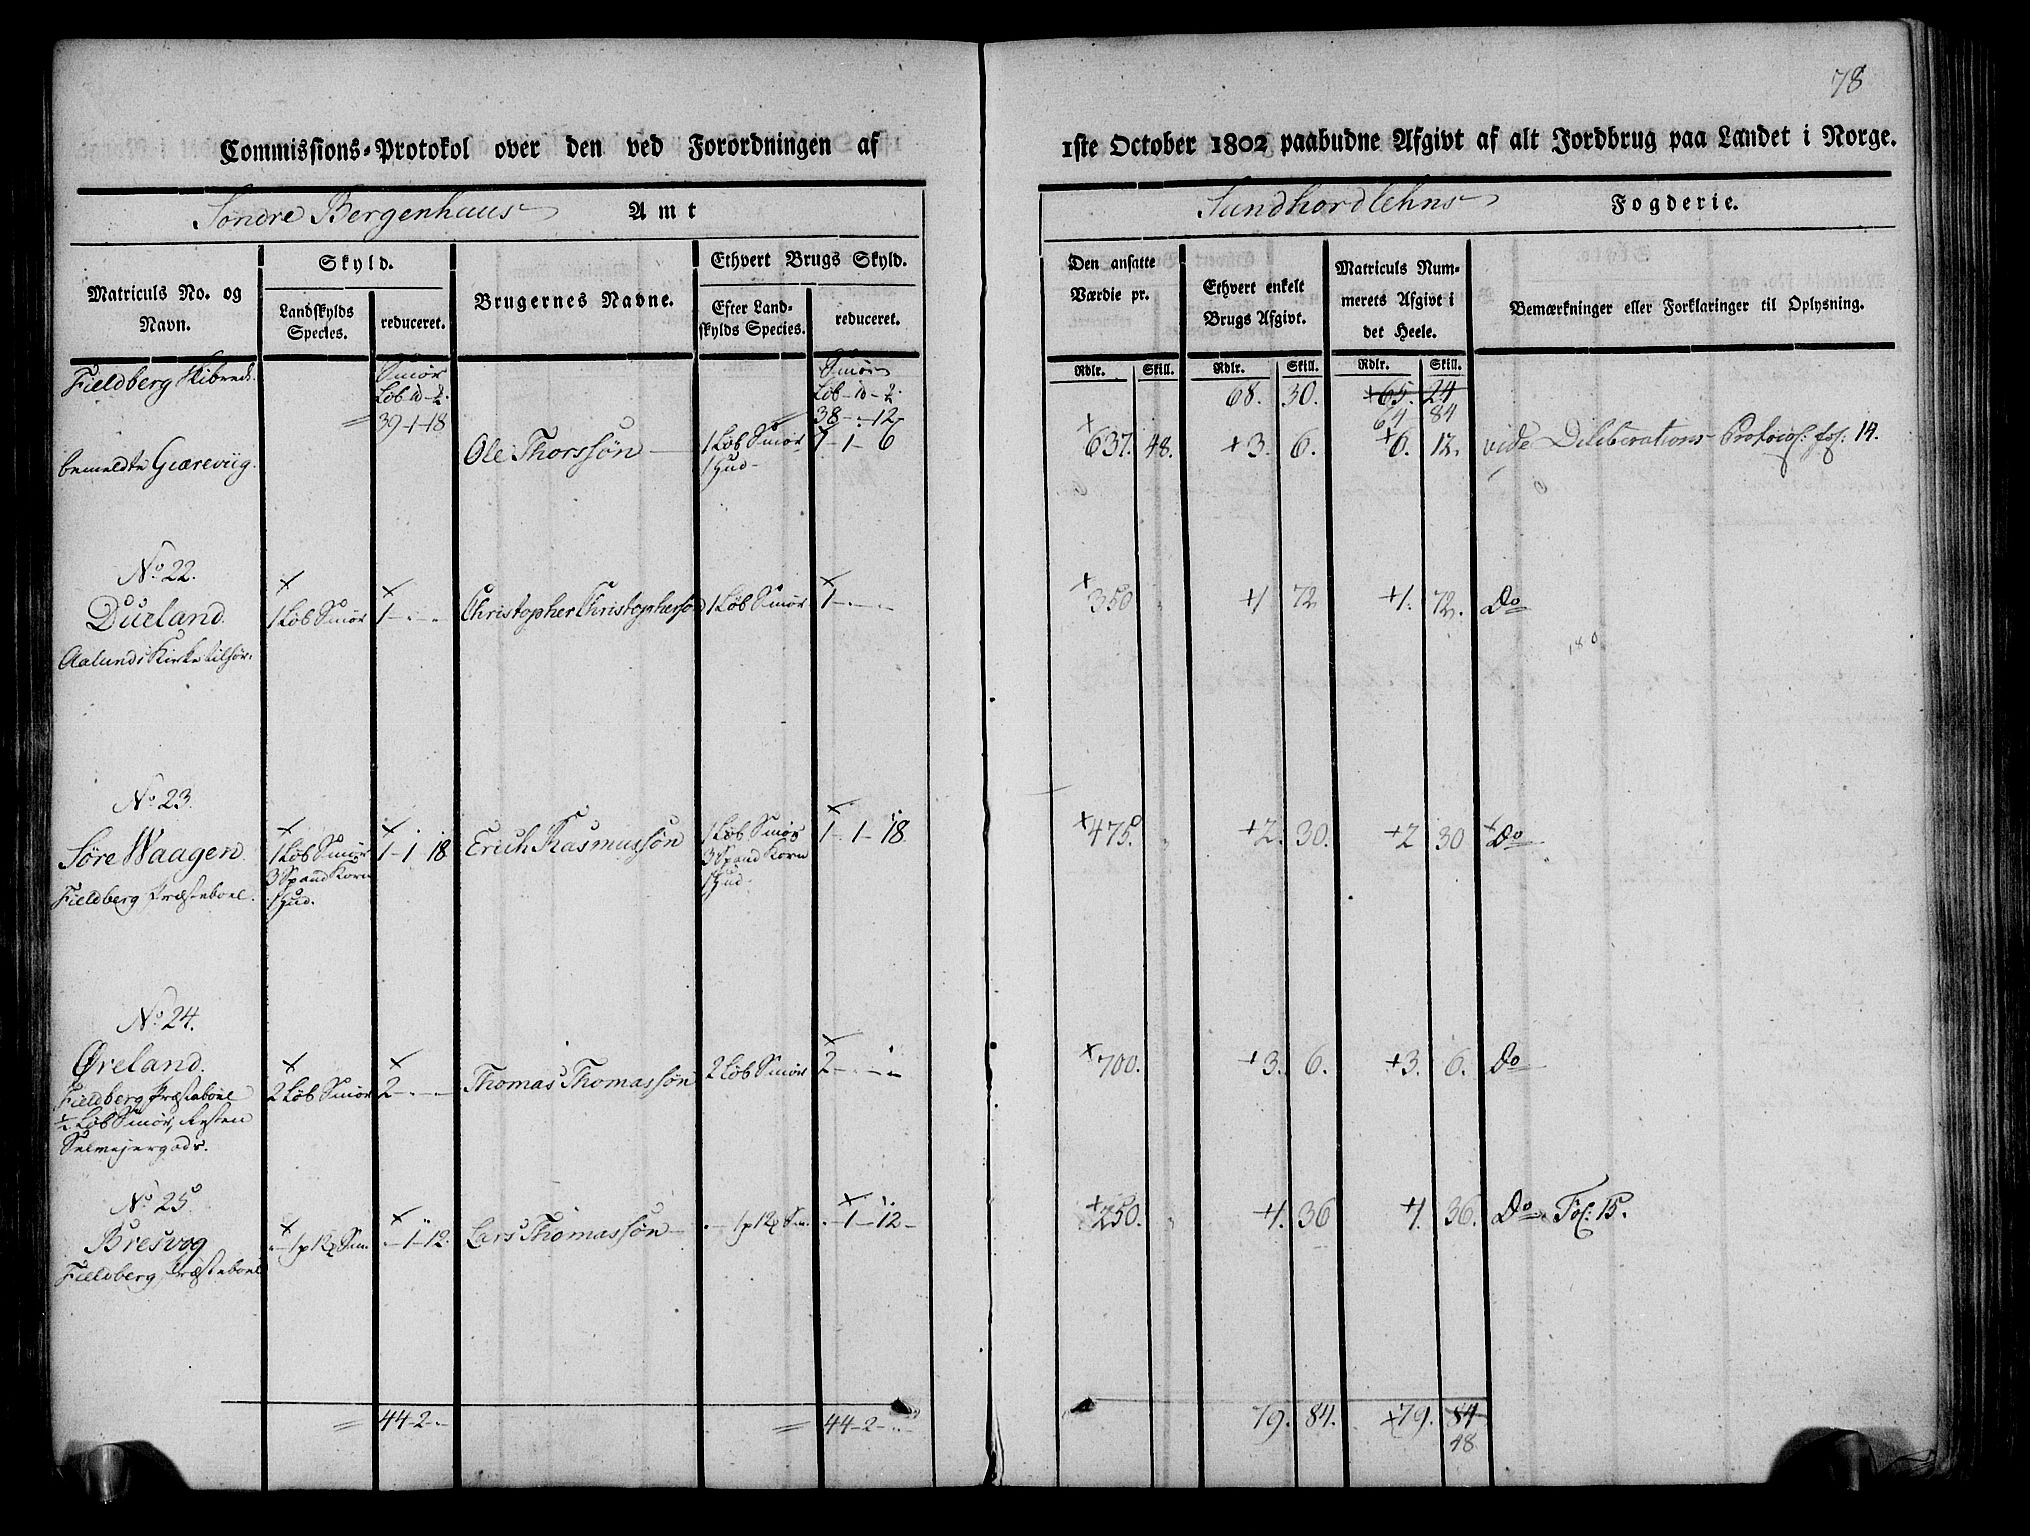 78
Commissions-Protokol over den ved Forordningen af
1ste October 1802 paabudne Afgivt af alt Jordbrug paa Landet i Norge.
Søndre Bergenhuus Amt
Sundhordlehns Fogderie.
Matriculs No. og Navn.
Skyld.
Landskylds Species.
reduceret.
Brugernes Navne.
Ethvert Brugs Skyld.
Efter Landskylds Species.
reduceret.
Den ansatte Værdie pr.
Ethvert enkelt Brugs Afgivt.
Matriculs Nummerets Afgivt i det Heele.
Bemærkninger eller Forklaringer til Oplysning.
Rdlr. Skill. Rdlr. Skill. Rdlr. Skill.
Fieldberg Skibrede. Smør Smør
68. 30. +65. 24
= 39-1-18 = 38-.-12-
64 84
bemeldte Giæreviig. Ole Thorssøn 1 Løb Smør 1-1-6 + 637. 48. +3. 6. +6. 12. vide Deliberations Protocol: fol: 14.
1 Hud
No. 22.
Dueland 1 Løb Smør 1-.-.. Christopher Christophersøn 1 Løb Smør 1-.-.. + 350 +1 72 +1. 72. Do
Aalunds Kirke tilhør:
No. 23.
Søre Waagen. 1 Løb Smør 1-1-18 Erich Rasmussøn 1 Løb Smør 1-1-18. + 475. +2. 30. +2 30 Do
3 Spand Korn 3 Spand Korn
Fieldberg Præsteboel. 1 Hud. 1 Hud.
No. 24.
Øreland. 2 Løb Smør 2-.-.. Thomas Thomassøn 2 Løb Smør 2-.-.. + 700. +3. 6. +3. 6. Do
Fieldberg Præsteboel
½ Løb Smør, Resten
Selmejergods.
No. 25
Bresvog .-1-12. Lars Thomassøn .-1-12- + 250. +1. 36 +1. 36. Do Fol: 15.
Fieldberg Præsteboel
= 44-2-.. = 44-2-.. 79. 84. x79. 84
48